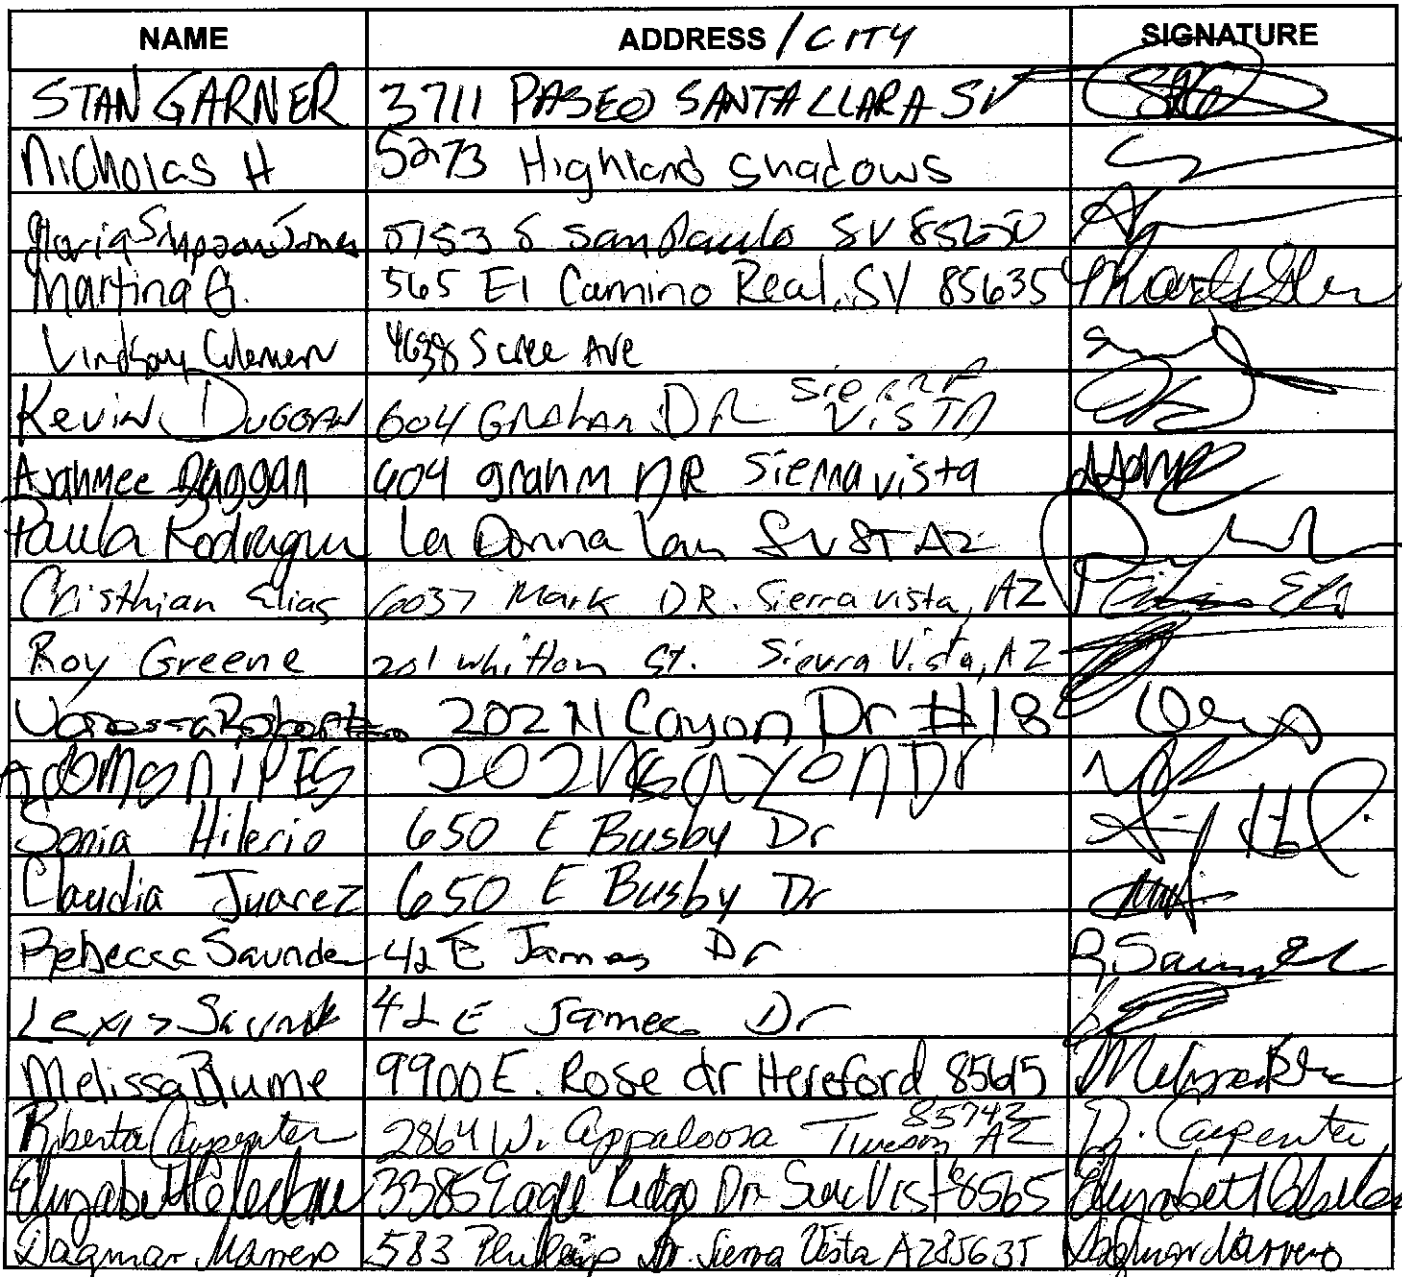 NAME ADDRESS / CITY SIGNATURE
STAN GARNER 3711 PASEO SANTA CLARA SV
Nicholas H 5273 Highland Shadows
Gloria Simpson Jones 5753 S San Paulo SV 85650
Martina G. 565 El Camino Real, SV 85635
Lindsay 4638 S Ave
Kevin DUGGAN 604 GRAHAM DR SIERRA VISTA
Duggan 604 grahm DR Sierra vista
Paula La Donna SV AZ
Cristhian Elias 6037 Mark DR. Sierra vista, AZ
Roy Greene 201 Whitton St. Sierra Vista, AZ
Vanessa 202 N Cayon Dr #18
202 N Cayon Dr
Sonia Hilerio 650 E Busby Dr
Claudia Juarez 650 E Busby Dr
Rebecca Saunde 42 E James Dr R Saun
Lexis 42 E James Dr
Melissa Blume 9900 E. Rose dr Hereford 85615 Melissa
Roberta Carpenter 2864 W. Appaloosa Tucson AZ 85742 R. Carpenter
Elizabeth 3385 Eagle Ridge Dr
Dagmar Marrero 583 Dr. Sierra Vista AZ 85635 Dagmar Marrero